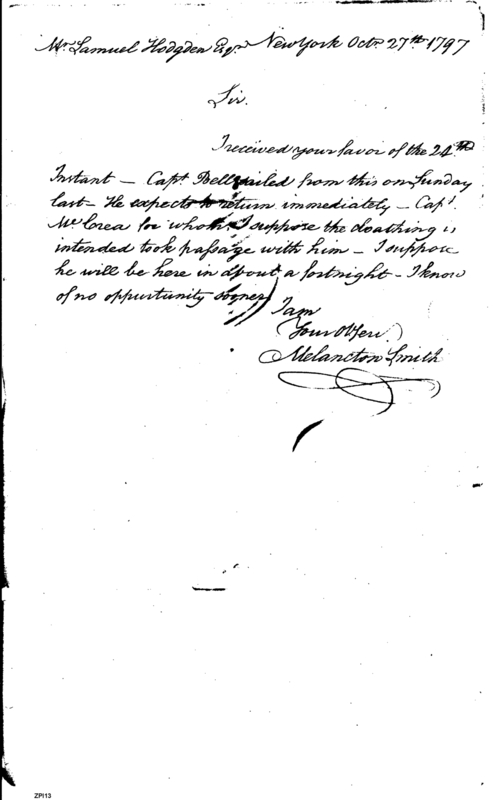 Mr. Samuel Hodgden Esqr. New York Octr. 27th 1797
Sir.
I received your favor of the 24th
Instant — Capt. Bell sailed from this on Sunday
last — He expects to return immediately — Capt.
McCrea for whom I suppose the cloathing is
intended took passage with him — I suppose
he will be here in about a fortnight — I know
of no oppurtunity sooner
I am
Your Ob Serv.
Melancton Smith
ZPI13